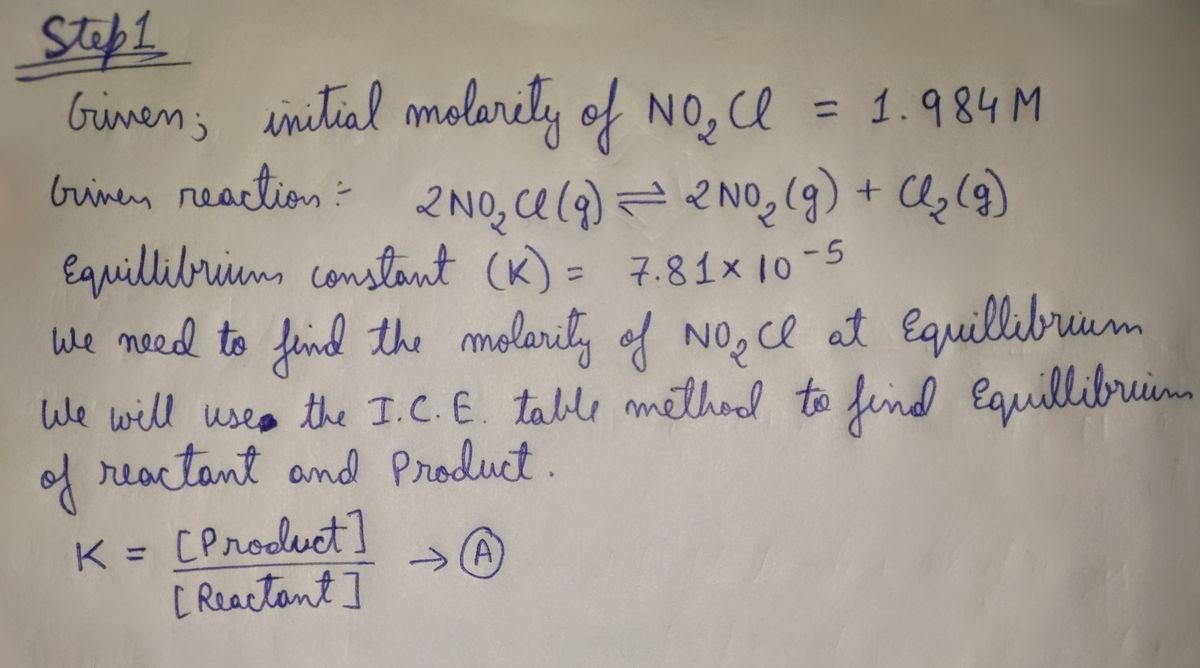 Step 1
Given; initial molarity of NO₂Cl = 1.984 M
Given reaction:- 2NO₂Cl(g) ⇌ 2NO₂(g) + Cl₂(g)
Equillibrium constant (K) = 7.81 × 10⁻⁵
We need to find the molarity of NO₂Cl at Equillibrium
We will use the I.C.E. table method to find Equillibrium
of reactant and Product.
K = [Product] → Ⓐ
[Reactant]